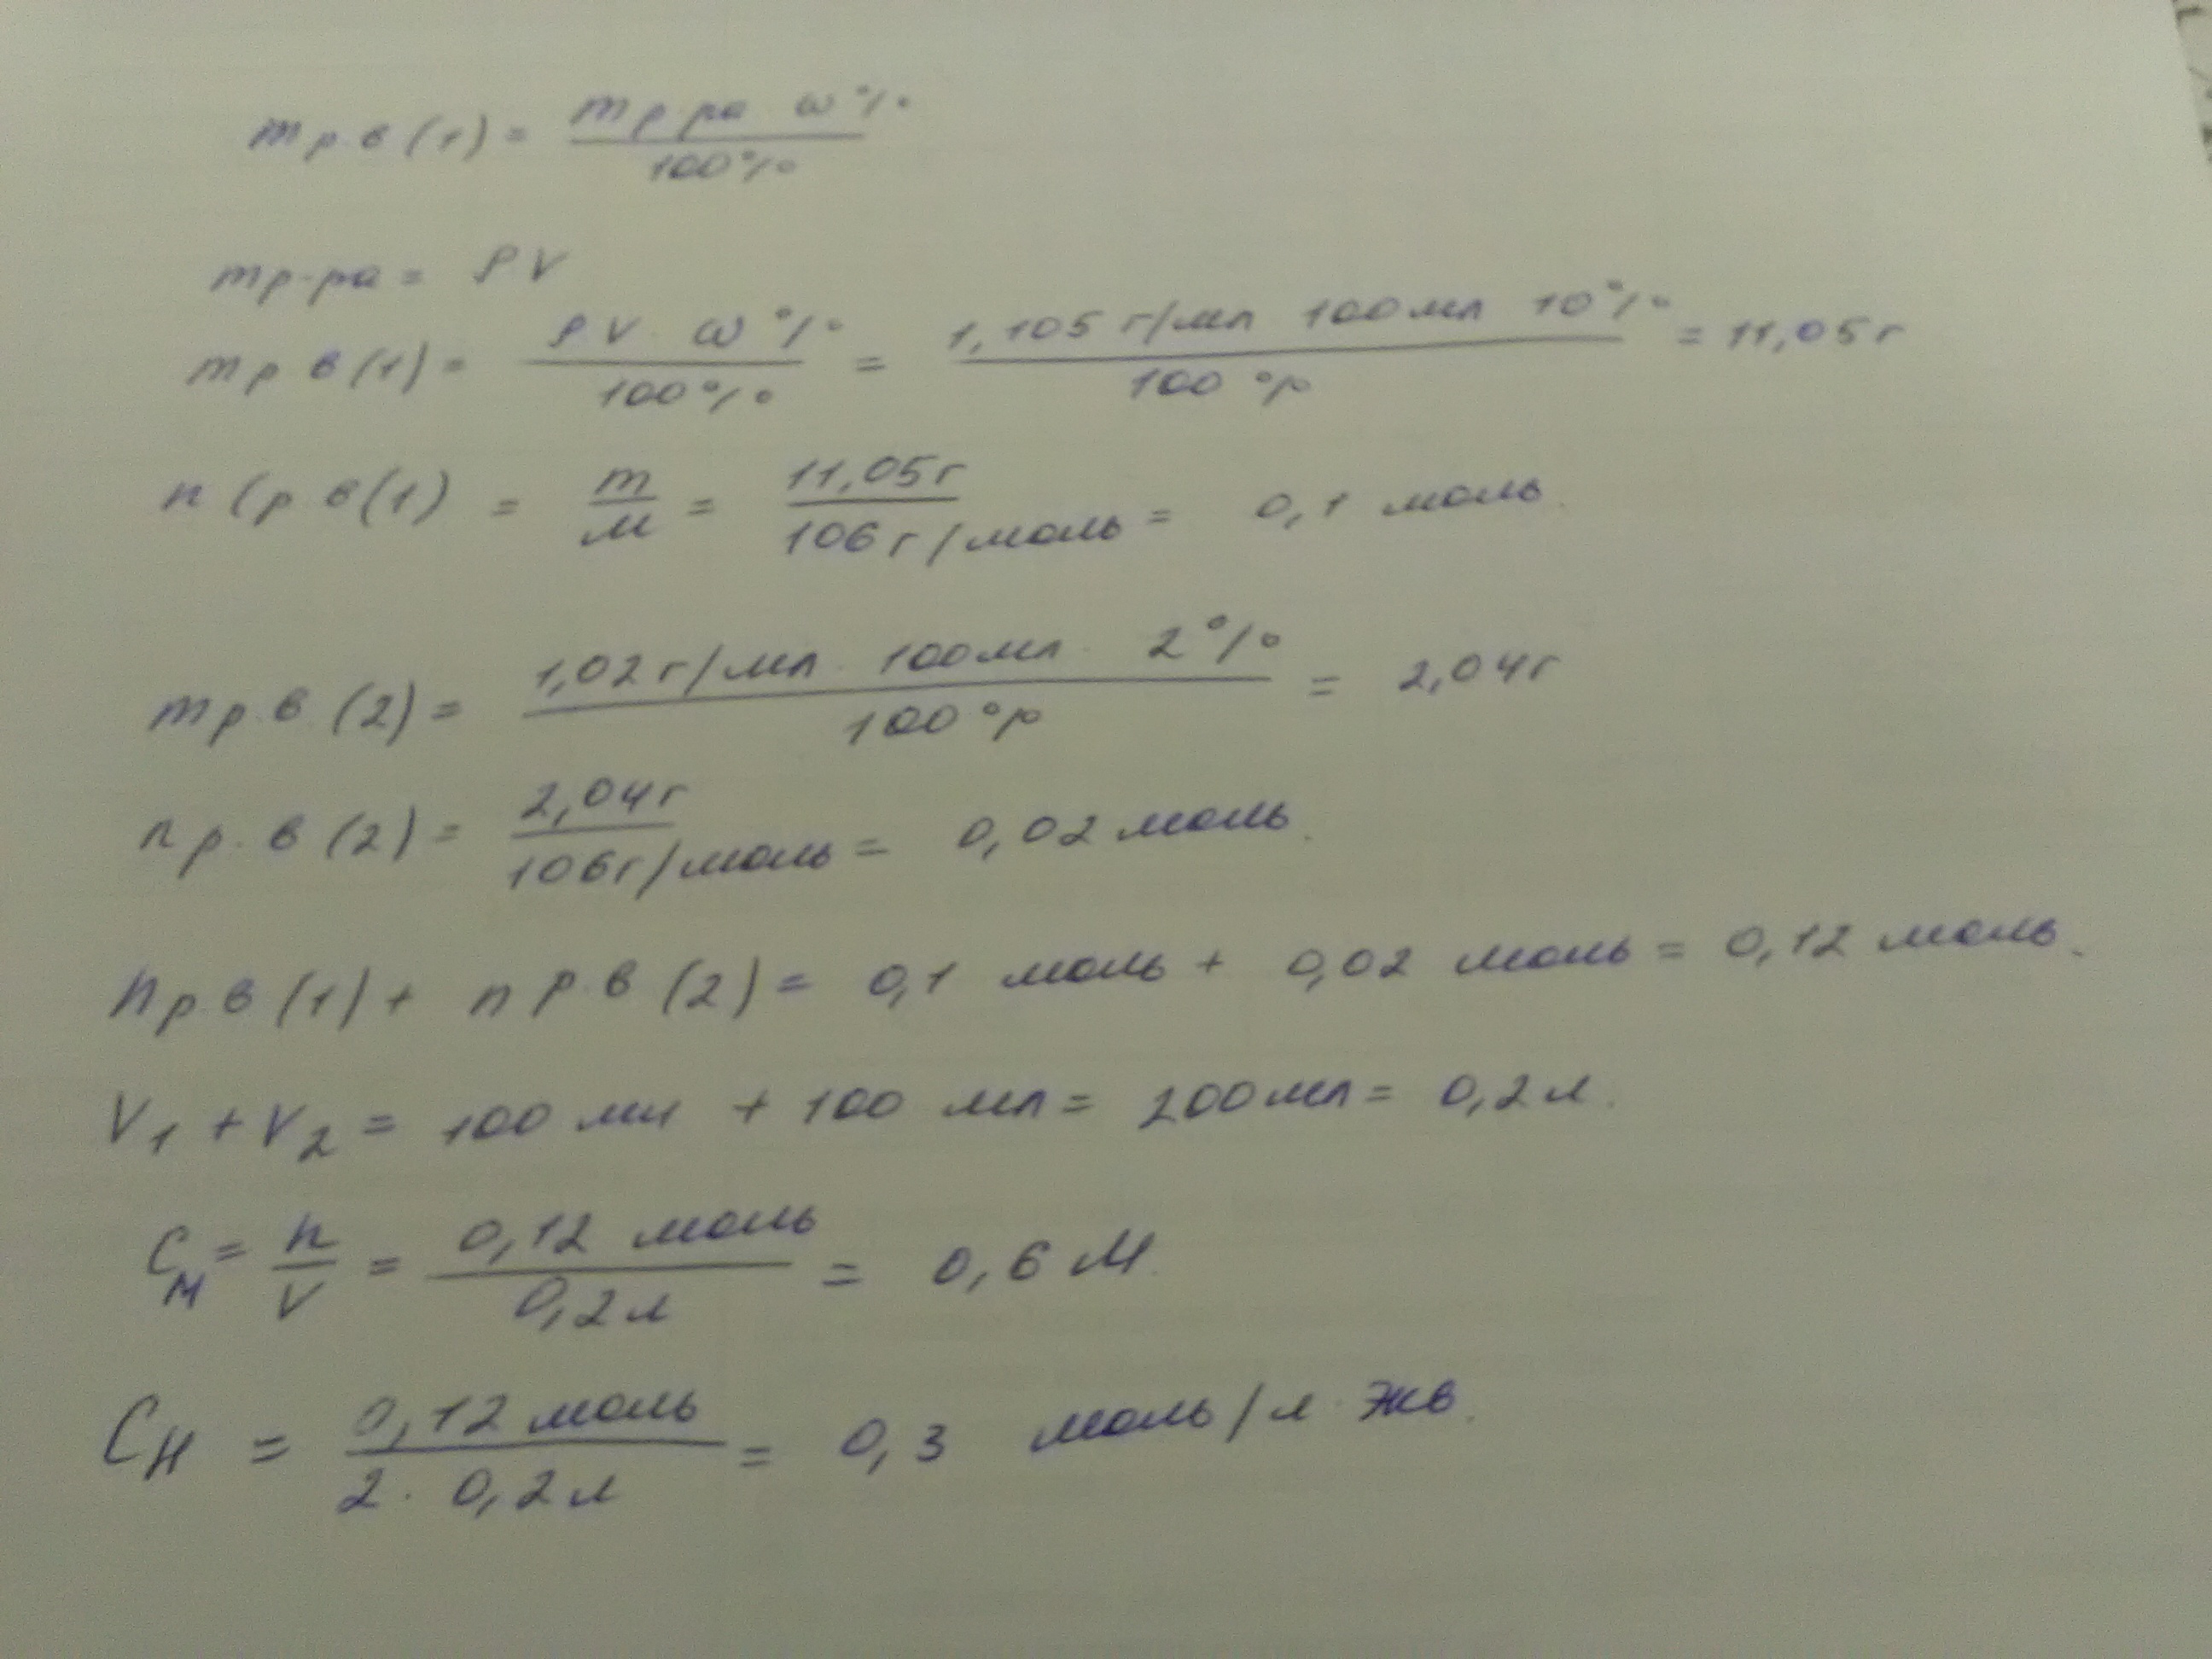 m р.в (1) = m р-ра ω % / 100%
m р-ра = ρ V
m р в (1) = ρ V · ω % / 100% = 1,105 г/мл 100 мл 10 % / 100 % = 11,05 г
n (р в (1) = m / M = 11,05 г / 106 г/моль = 0,1 моль.
m р.в. (2) = 1,02 г/мл · 100 мл · 2 % / 100 % = 2,04 г
n р.в (2) = 2,04 г / 106 г/моль = 0,02 моль.
n р.в (1) + n р.в (2) = 0,1 моль + 0,02 моль = 0,12 моль.
V1 + V2 = 100 мл + 100 мл = 200 мл = 0,2 л.
Cм = n / V = 0,12 моль / 0,2 л = 0,6 М.
Cн = 0,12 моль / 2 · 0,2 л = 0,3 моль/л · экв.